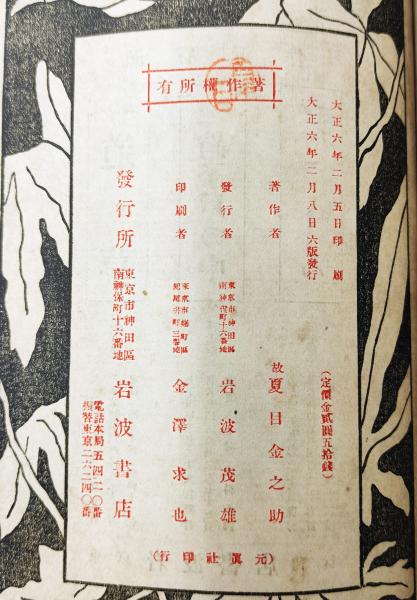 著作權所有
大正六年二月五日印刷
大正六年二月八日六版發行
(定價金貳圓五拾錢)
著作者 故 夏目金之助
發行者 東京市神田區南神保町十六番地 岩波茂雄
印刷者 東京市麴町區 金澤求也
發行所 東京市神田區南神保町十六番地 岩波書店
電話本局五四二〇番
振替東京二六二四〇番
(元眞社印行)